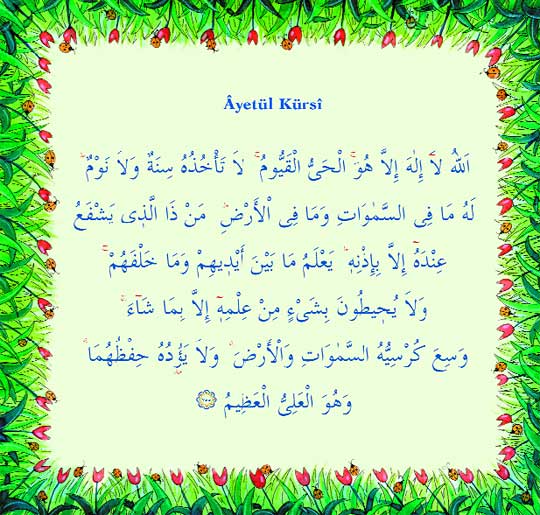 Âyetül Kürsî
اَللّٰهُ لَٓا اِلٰهَ اِلَّا هُوَۚ اَلْحَىُّ الْقَيُّومُۚ لَا تَأْخُذُهُ سِنَةٌ وَلَا نَوْمٌۜ
لَهُ مَا فِى السَّمٰوَاتِ وَمَا فِى الْاَرْضِۜ مَنْ ذَا الَّذٖى يَشْفَعُ
عِنْدَهُٓ اِلَّا بِاِذْنِهٖۜ يَعْلَمُ مَا بَيْنَ اَيْدٖيهِمْ وَمَا خَلْفَهُمْۚ
وَلَا يُحٖيطُونَ بِشَىْءٍ مِنْ عِلْمِهٖٓ اِلَّا بِمَا شَٓاءَۚ
وَسِعَ كُرْسِيُّهُ السَّمٰوَاتِ وَالْاَرْضَۚ وَلَا يَؤُدُهُ حِفْظُهُمَاۚ
وَهُوَ الْعَلِىُّ الْعَظِيمُ